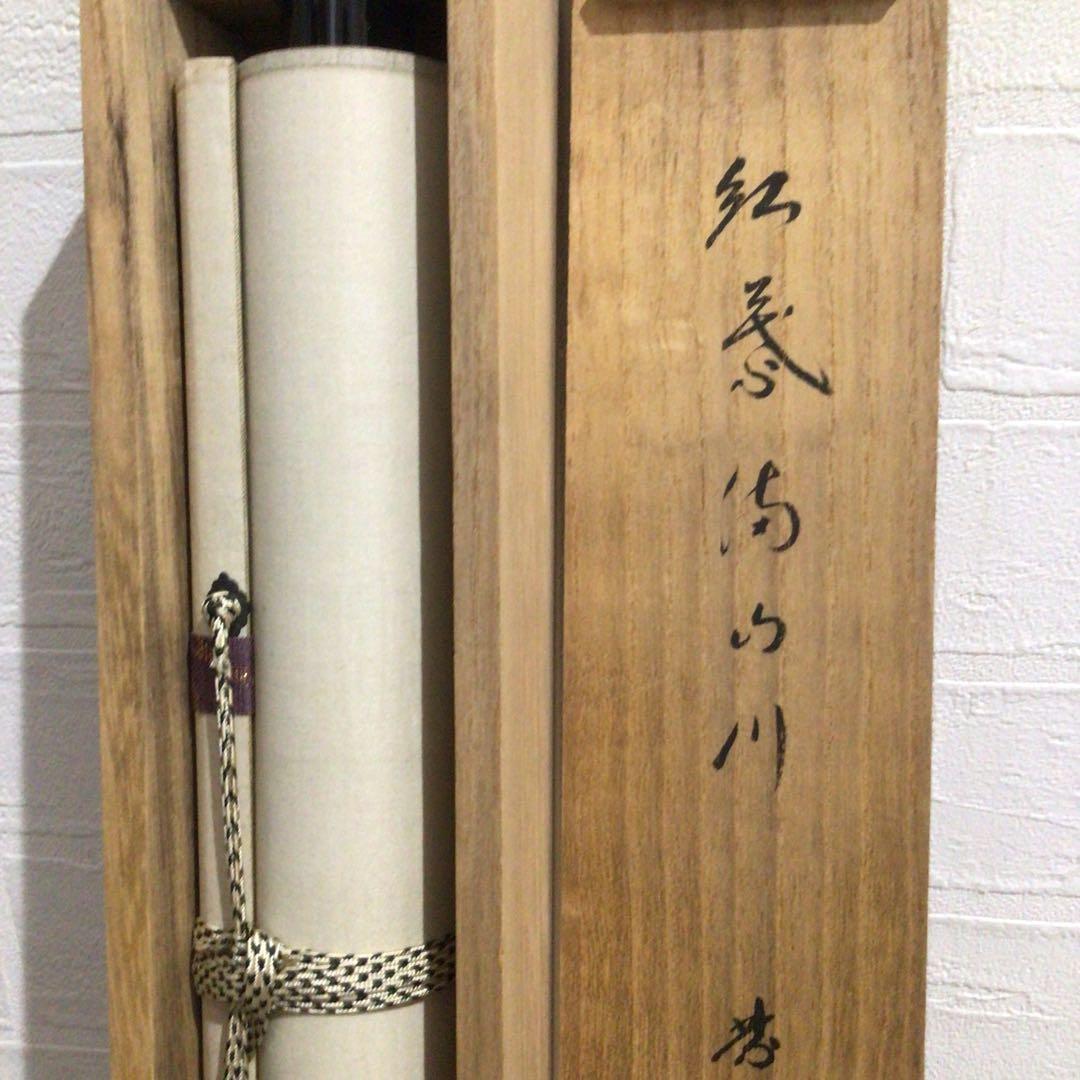 紅葉満山川